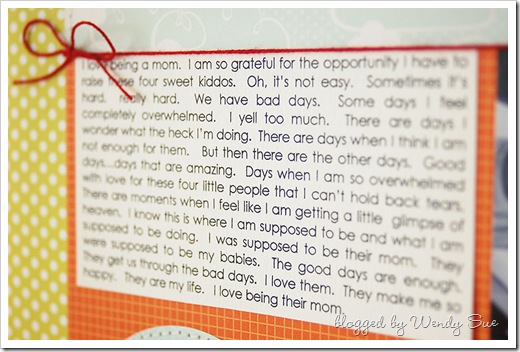 I love being a mom. I am so grateful for the opportunity I have to
raise these four sweet kiddos. Oh, it's not easy. Sometimes it's
hard. really hard. We have bad days. Some days I feel
completely overwhelmed. I yell too much. There are days I
wonder what the heck I'm doing. There are days when I think I am
not enough for them. But then there are the other days. Good
days...days that are amazing. Days when I am so overwhelmed
with love for these four little people that I can't hold back tears.
There are moments when I feel like I am getting a little glimpse of
heaven. I know this is where I am supposed to be and what I am
supposed to be doing. I was supposed to be their mom. They
were supposed to be my babies. The good days are enough.
They get us through the bad days. I love them. They make me so
happy. They are my life. I love being their mom
blogged by Wendy Sue